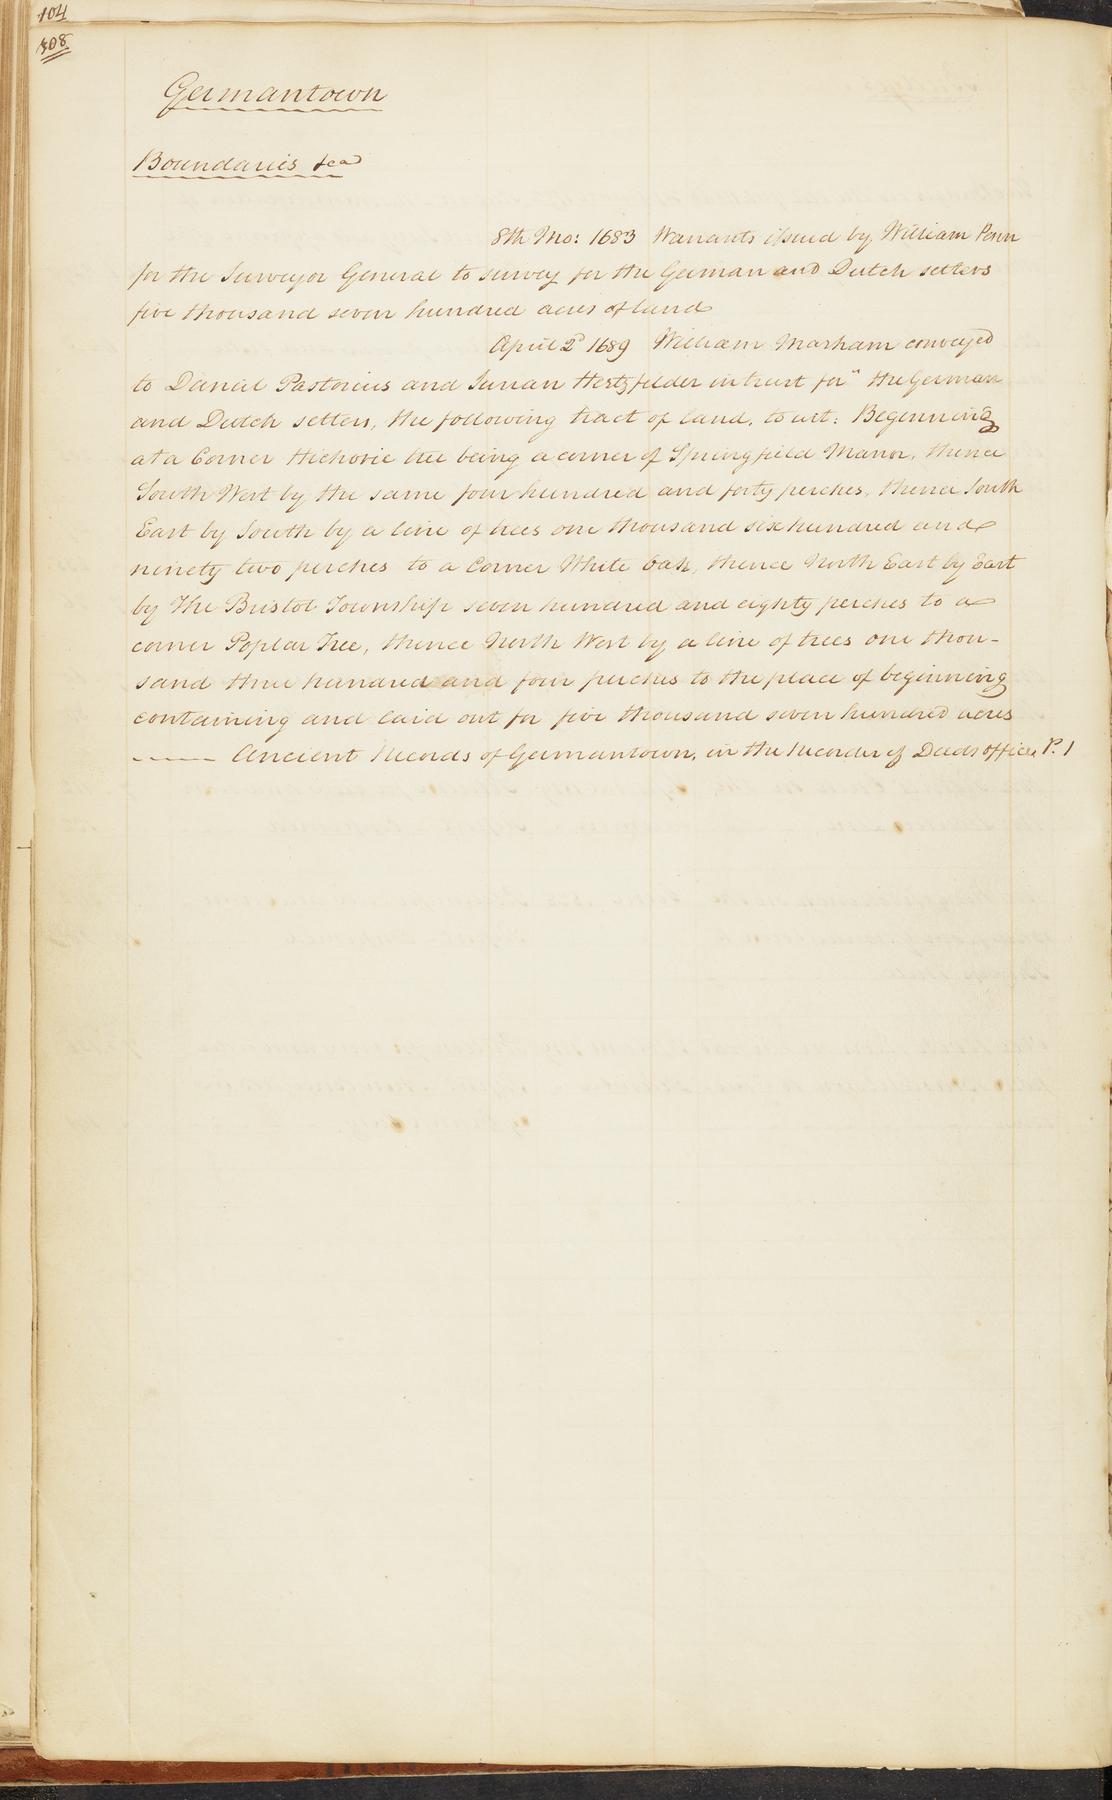 104
108
Germantown
Boundaries &ca
8th Mo: 1683 Warrants issued by William Penn
for the Surveyor General to survey for the German and Dutch setters
five thousand seven hundred acres of land
April 2d 1689 William Marham conveyed
to Danial Pastorius and Jurian Hertzfelder in trust for " the German
and Dutch setters, the following tract of land, to wit: Beginning
at a Corner Hickorie tree being a corner of Springfield Manor, thence
South West by the same four hundred and forty perches, thence South
East by South by a line of trees one thousand six hundred and
ninety two perches to a Corner White Oak, thence North East by East
by The Bristol Township seven hundred and eighty perches to a
corner Poplar Tree, thence North West by a line of trees one thou-
sand three hundred and four perches to the place of beginning
containing and laid out for five thousand seven hundred acres
----- Ancient Records of Germantown, in the Recorder of Deeds office P. 1